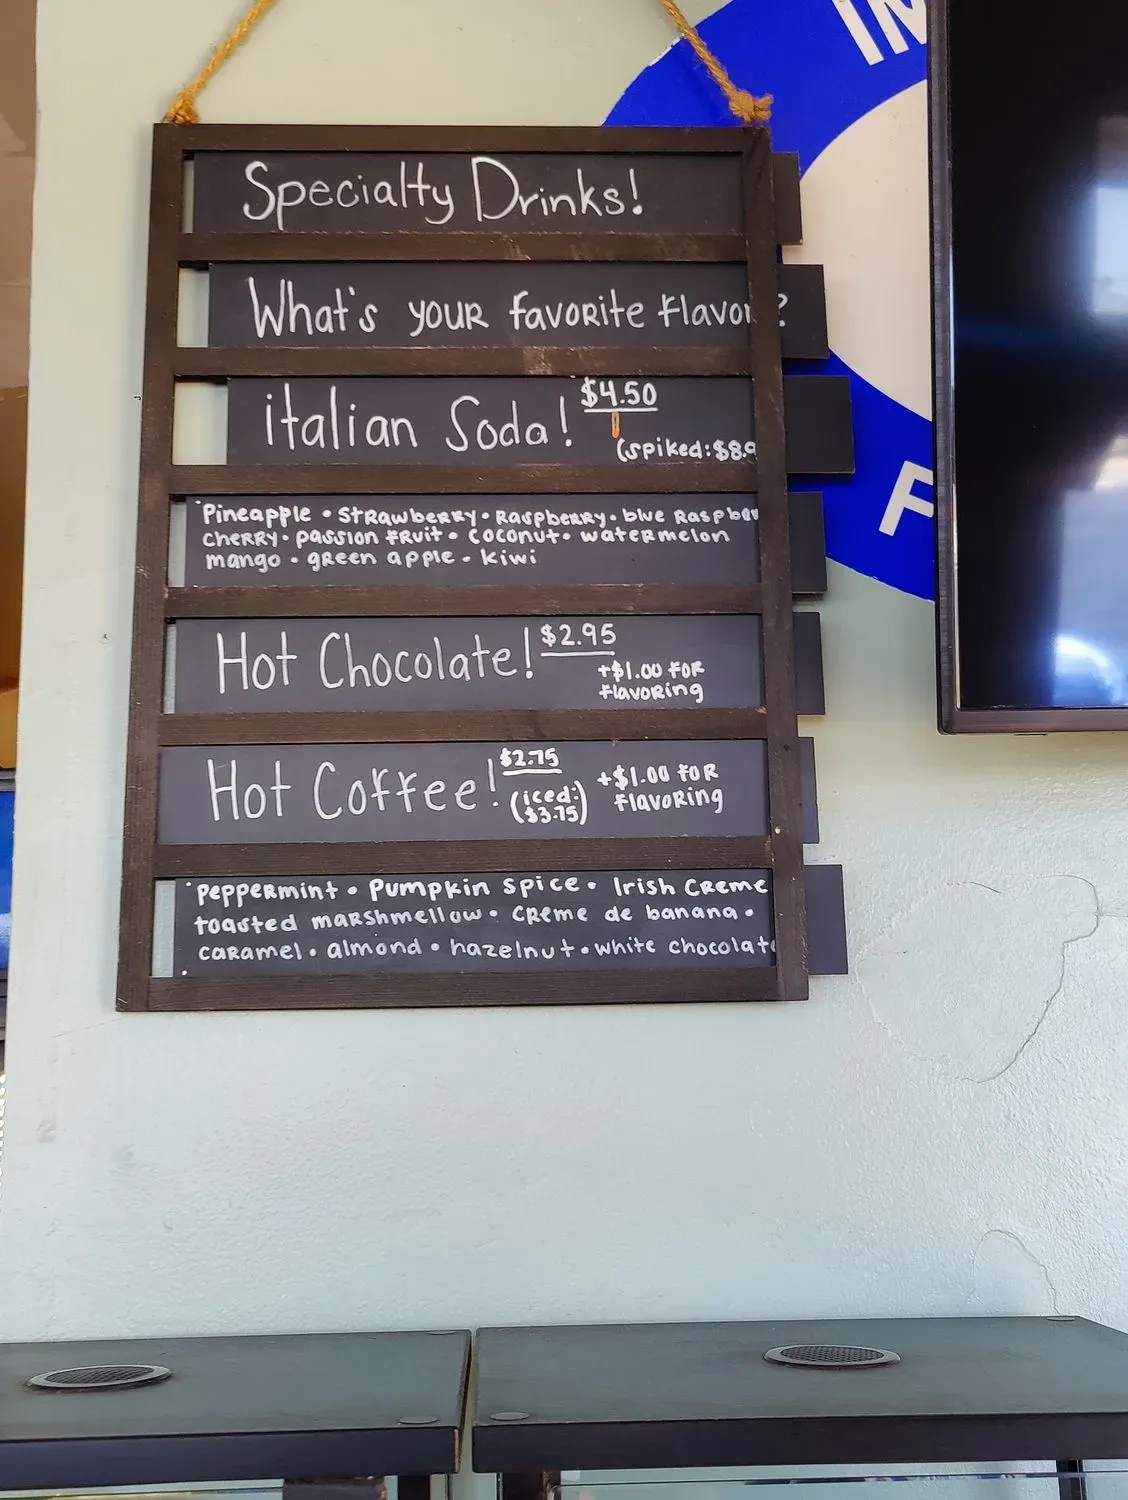 Specialty Drinks!
What's your favorite flavor?
italian Soda! $4.50
(spiked: $8.9
Pineapple • Strawberry • Raspberry • blue Raspber
cherry • passion fruit • coconut • watermelon
mango • green apple • kiwi
Hot Chocolate! $2.95
+$1.00 for
flavoring
Hot Coffee! $2.75
(iced: $3.75)
+$1.00 for
flavoring
Peppermint • Pumpkin spice • Irish Creme
toasted marshmellow • creme de banana •
caramel • almond • hazelnut • white chocolate
IN
F